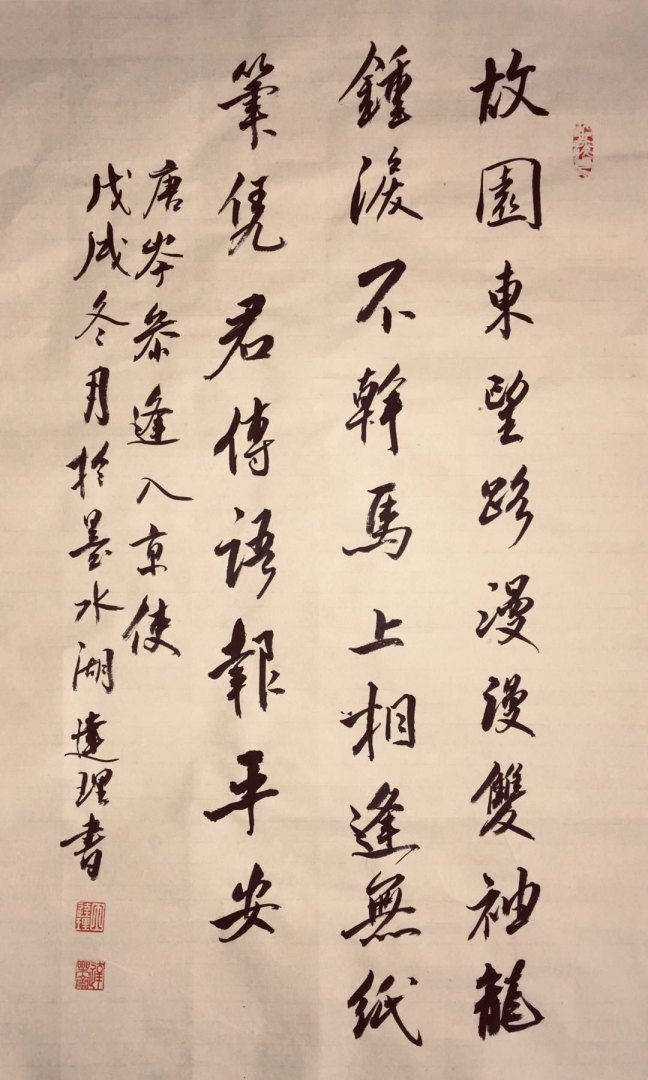 故園東望路漫漫雙袖龍
鍾淚不幹馬上相逢無紙
筆凭君傳語報平安
唐岑參逢入京使
戊戌冬月於墨水湖達理書